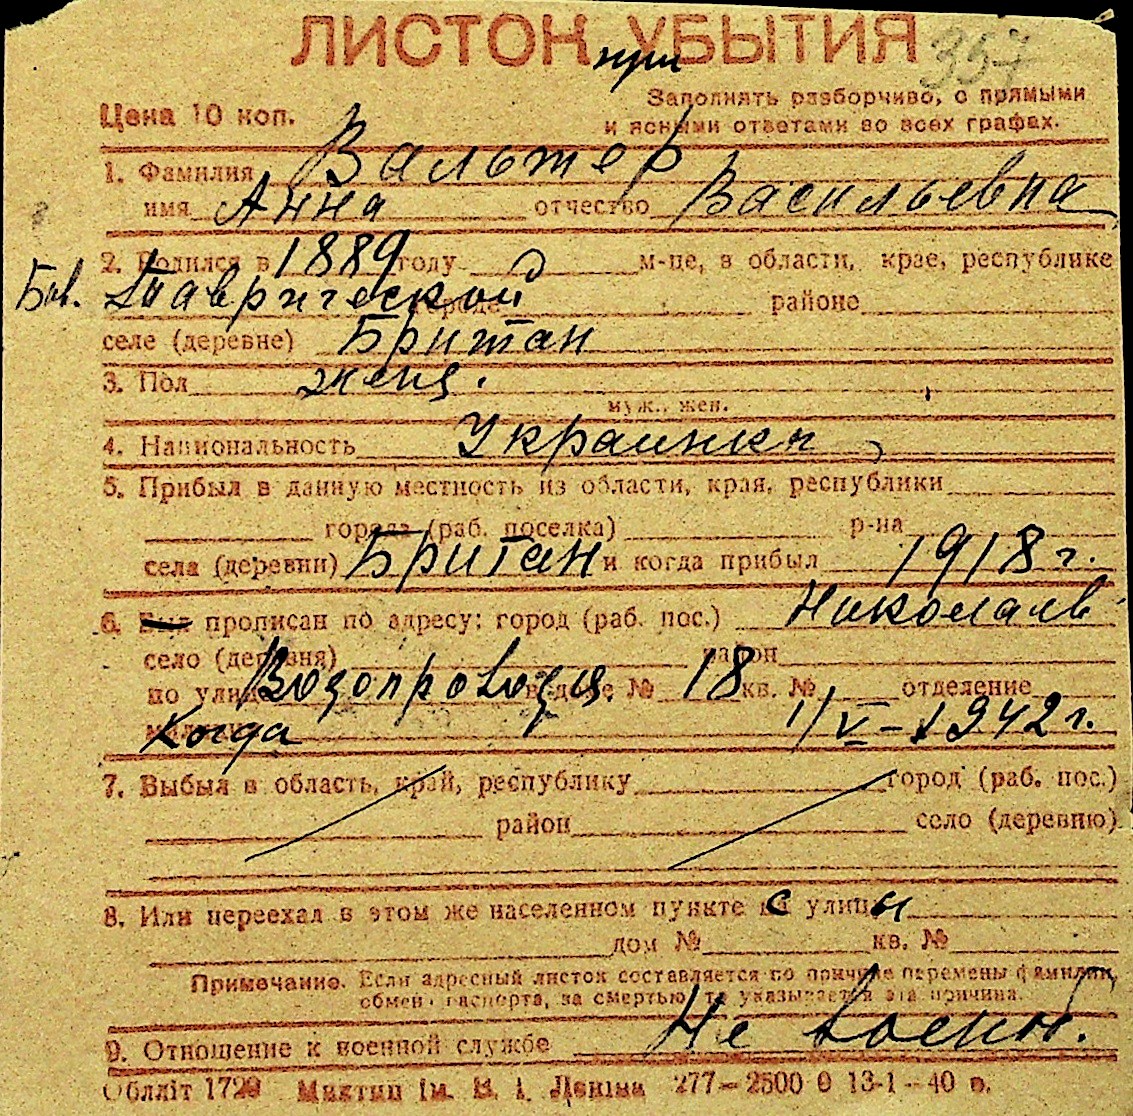 ЛИСТОК при УБЫТИЯ 357
Цена 10 коп.
Заполнять разборчиво, с прямыми
и ясными ответами во всех графах.
1. Фамилия Вальтер
имя Анна отчество Васильевна
2. Родился в 1889 году м-це, в области, крае, республике
Таврической городе районе
селе (деревне) Британ
3. Пол женщ.
муж., жен.
4. Национальность Украинка
5. Прибыл в данную местность из области, края, республики
города (раб. поселка) р-на
села (деревни) Британ и когда прибыл 1918 г.
6. Был прописан по адресу: город (раб. пос.) Николаев
село (деревня) район
по улице Водопроводн. в доме № 18 кв. № отделение
милиции Когда 1/V-1942 г.
7. Выбыл в область, край, республику город (раб. пос.)
район село (деревню)
8. Или переехал в этом же населенном пункте с улицы
дом № кв. №
Примечание. Если адресный листок составляется по причине перемены фамилии,
обмена паспорта, за смертью, то указывается эта причина.
9. Отношение к военной службе Не военн.
Обллiт 1729 Миктип iм. В. I. Ленiна 277–2500 0 13-1-40 р.